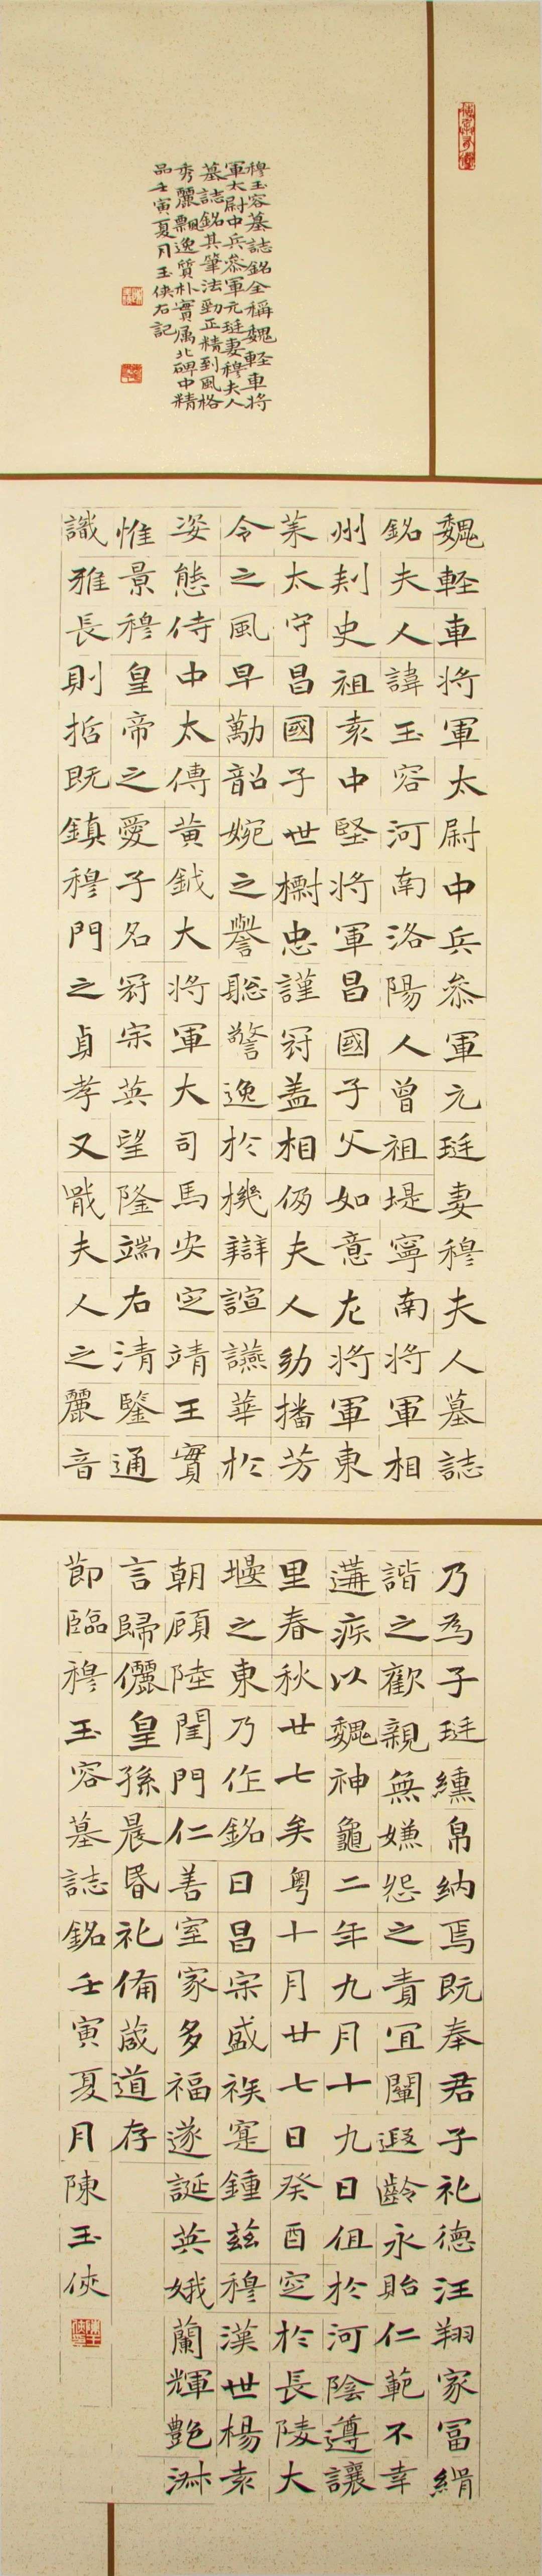 穆玉容墓誌銘全稱魏軽車將
軍太尉中兵叅軍元珽妻穆夫人
墓誌銘其筆法勁正精到風格
秀麗飄逸質朴實属北碑中精
品壬寅夏月玉俠右記
魏軽車將軍太尉中兵叅軍元珽妻穆夫人墓誌
銘夫人諱玉容河南洛陽人曾祖堤寧南將軍相
州刾史祖袁中堅將軍昌國子父如意左將軍東
莱太守昌國子世櫉忠謹冠盖相仍夫人幼播芳
令之風早勵韶婉之譽聡警逸於機辯諠讌華於
姿態侍中太傅黄鉞大將軍大司馬安定靖王實
惟景穆皇帝之愛子名冠宗英望隆端右清鑒通
識雅長則哲既鎮穆門之貞孝又戢夫人之麗音
乃為子珽纁帛納焉既奉君子礼德汪翔家冨緝
諧之歡親無嫌怨之責宜闡遐齡永貽仁範不幸
遘疾以魏神龜二年九月十九日俎於河陰遵讓
里春秋廿七矣粤十月廿七日癸酉窆於長陵大
堰之東乃作銘曰昌宗盛族寔鍾兹穆漢世楊袁
朝願陸閨門仁善室家多福遂誕英娥蘭輝艷淋
言歸儷皇孫晨昏礼備葴道存
節臨穆玉容墓誌銘壬寅夏月陳玉俠